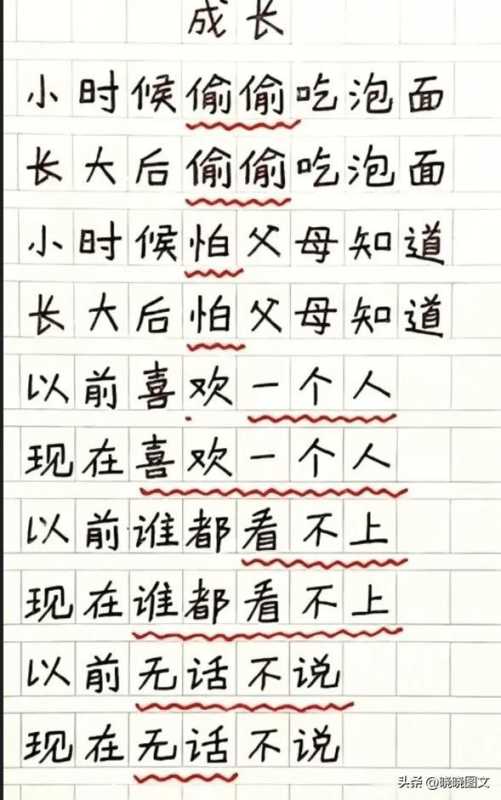 成长
小时候偷偷吃泡面
长大后偷偷吃泡面
小时候怕父母知道
长大后怕父母知道
以前喜欢一个人
现在喜欢一个人
以前谁都看不上
现在谁都看不上
以前无话不说
现在无话不说
头条 @晓晓图文